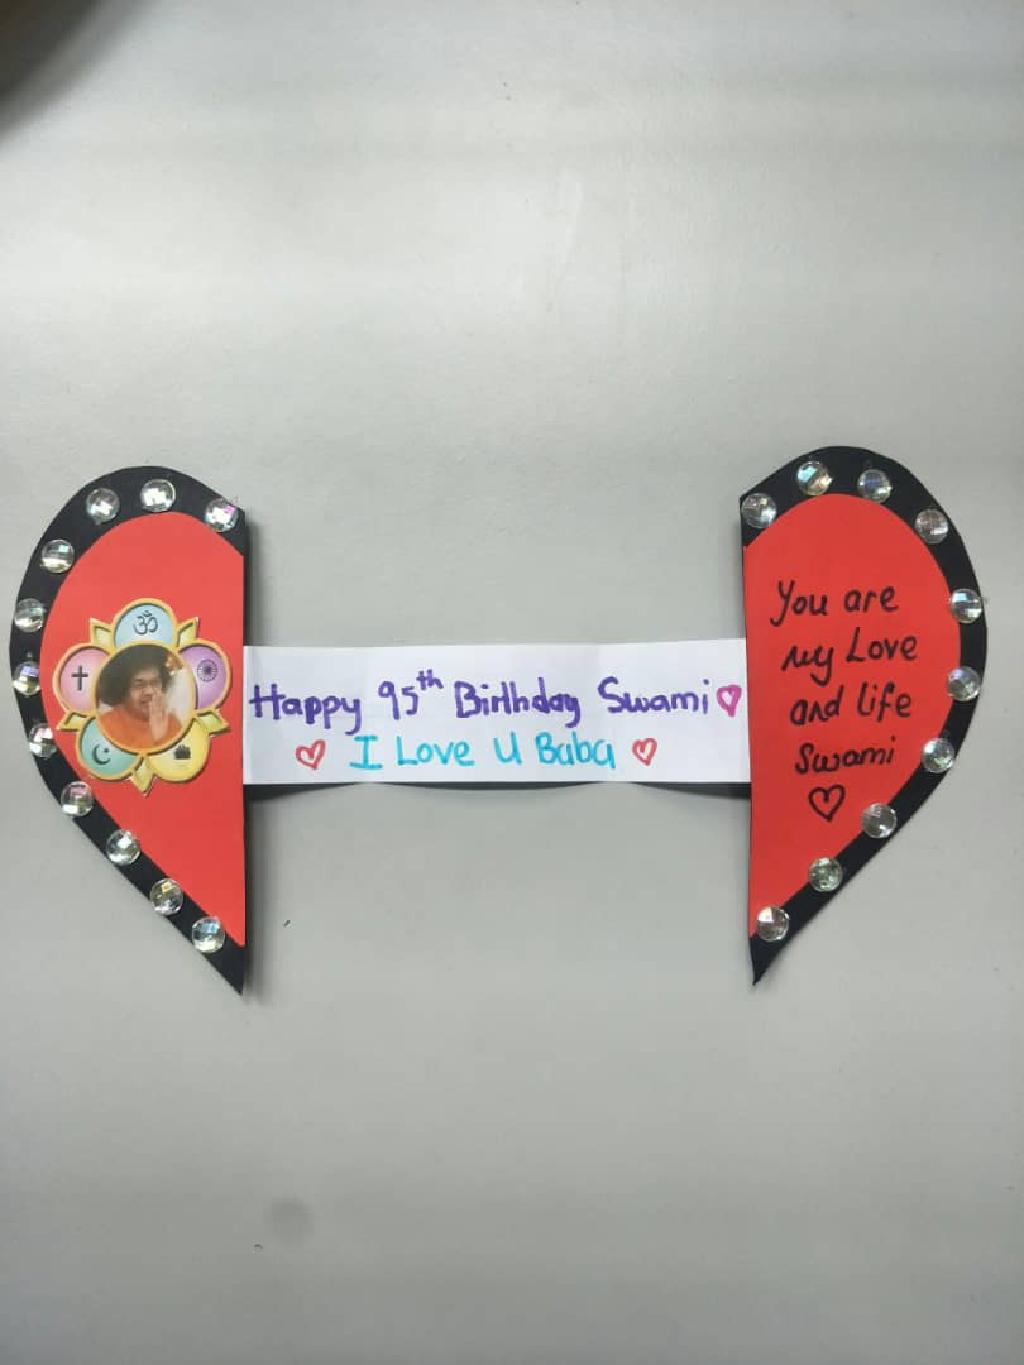 ॐ
Happy 95th Birthday Swami
I Love U Baba
You are
my Love
and life
Swami